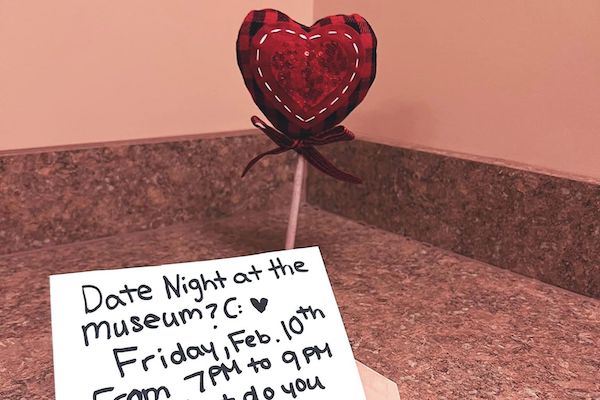 Date Night at the
museum? C: ♥
Friday, Feb. 10th
From 7PM to 9PM
do you